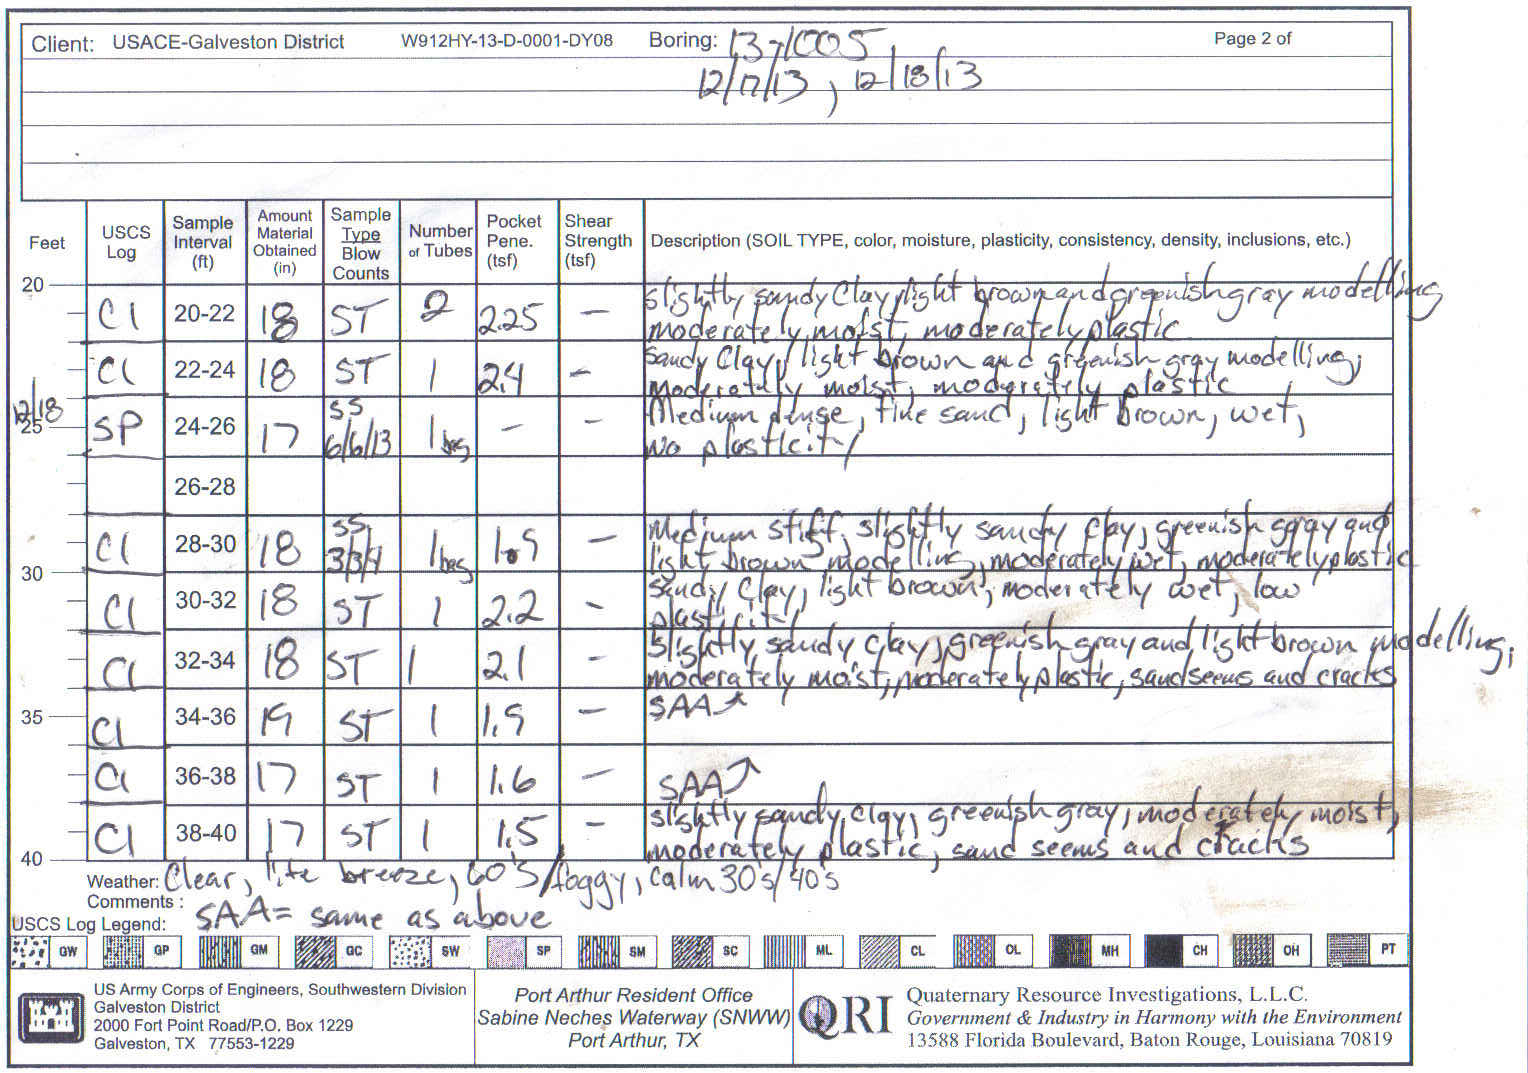 Client: USACE-Galveston District W912HY-13-D-0001-DY08 Boring: 13-1005 Page 2 of
12/17/13, 12/18/13
Feet USCS Log Sample Interval (ft) Amount Material Obtained (in) Sample Type Blow Counts Number of Tubes Pocket Pene. (tsf) Shear Strength (tsf) Description (SOIL TYPE, color, moisture, plasticity, consistency, density, inclusions, etc.)
20
Cl 20-22 18 ST 2 2.25 — slightly sandy Clay, light brown and greenish gray modelling
moderately moist, moderately plastic
Cl 22-24 18 ST 1 2.4 — Sandy Clay, light brown and greenish gray modelling,
moderately moist, moderately plastic
12/18
25 SP 24-26 17 SS 6/6/13 1 bag – – Medium dense, fine sand, light brown, wet,
No plasticity
26-28
Cl 28-30 18 SS 3/3/4 1 bag 1.9 — Medium stiff, slightly sandy clay, greenish gray and
light brown modelling, moderately wet, moderately plastic
30
Cl 30-32 18 ST 1 2.2 – sandy Clay, light brown, moderately wet, low
plasticity
Cl 32-34 18 ST 1 2.1 – slightly sandy clay, greenish gray and light brown modelling,
moderately moist, moderately plastic, sand seems and cracks
35 Cl 34-36 19 ST 1 1.9 — SAA↗
Cl 36-38 17 ST 1 1.6 — SAA↗
Cl 38-40 17 ST 1 1.5 – slightly sandy clay, greenish gray, moderately moist,
moderately plastic, sand seems and cracks
40
Weather: Clear, lite breeze, 60's/foggy, calm 30's/40's
Comments :
SAA= same as above
USCS Log Legend:
GW GP GM GC SW SP SM SC ML CL OL MH CH OH PT
US Army Corps of Engineers, Southwestern Division
Galveston District
2000 Fort Point Road/P.O. Box 1229
Galveston, TX 77553-1229
Port Arthur Resident Office
Sabine Neches Waterway (SNWW)
Port Arthur, TX
QRI
Quaternary Resource Investigations, L.L.C.
Government & Industry in Harmony with the Environment
13588 Florida Boulevard, Baton Rouge, Louisiana 70819